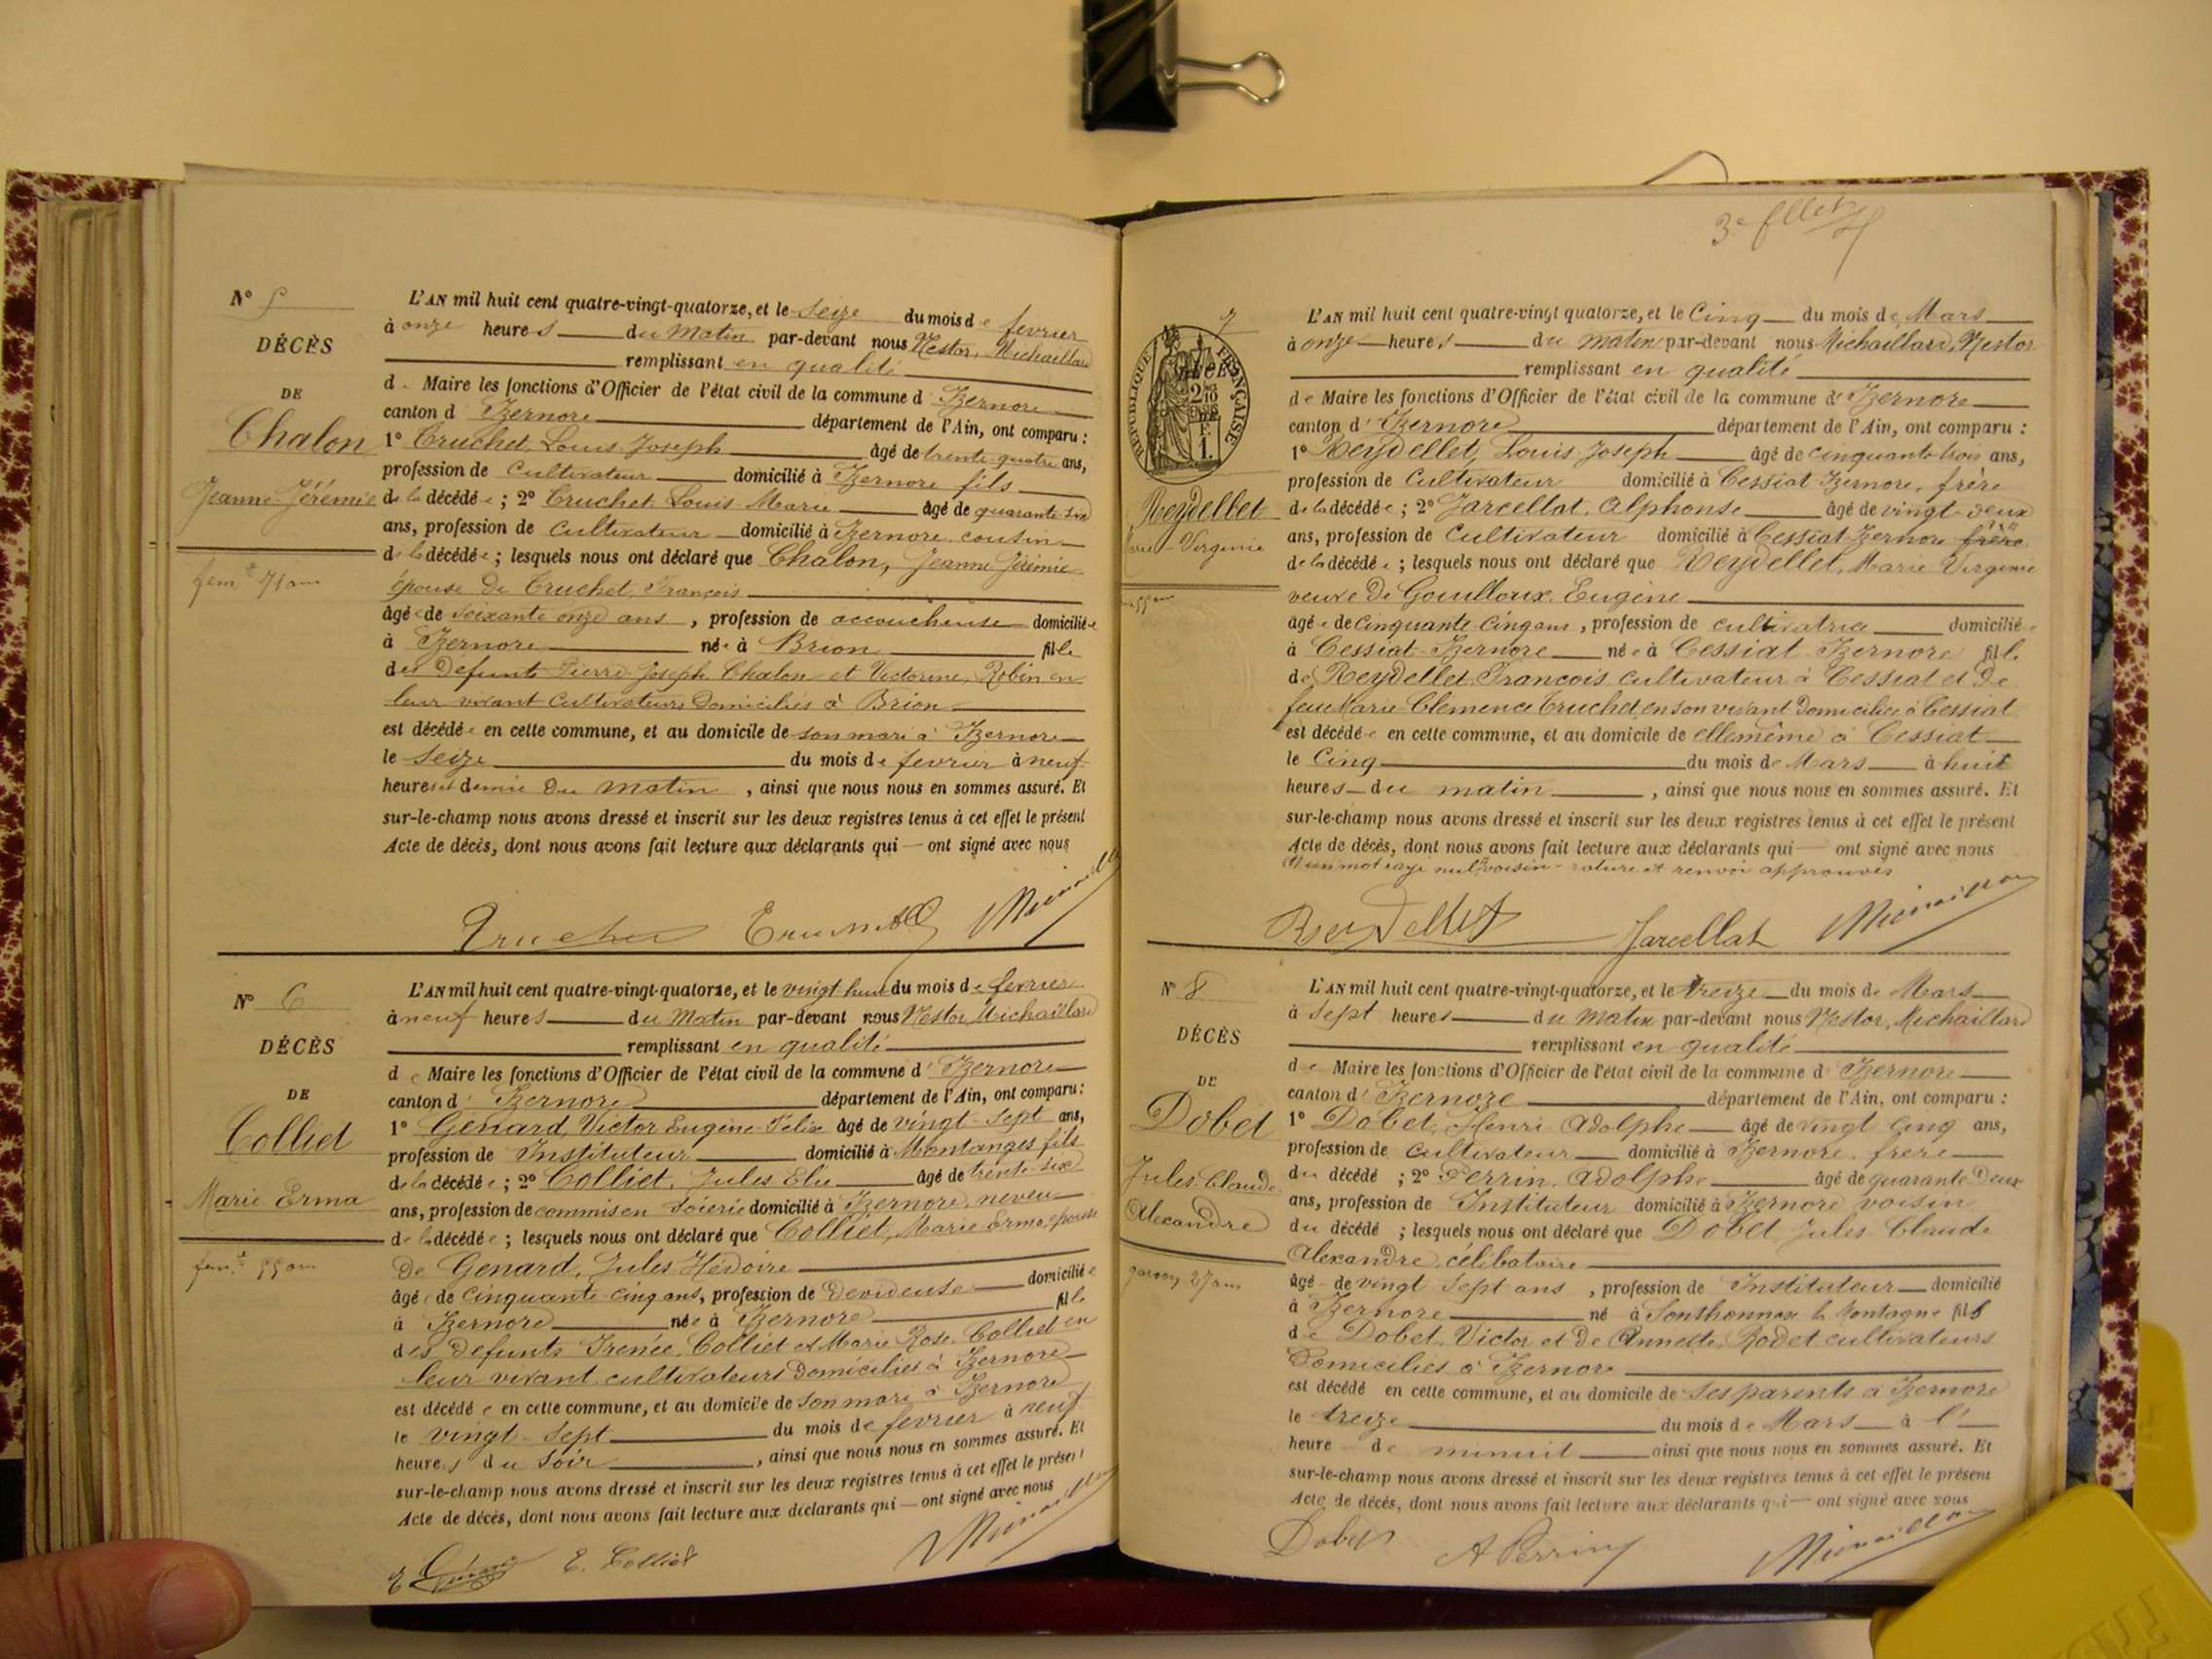 N° 5
DÉCÈS
DE
Chalon
Jeanne Jérémie
fem.e 71 ans
L'AN mil huit cent quatre-vingt-quatorze, et le seize du mois de fevrier
à onze heures du Matin par-devant nous Nestor, Michaillard
remplissant en qualité
de Maire les fonctions d'Officier de l'état civil de la commune d'Izernore
canton d'Izernore département de l'Ain, ont comparu :
1° Cruchet, Louis Joseph âgé de trente-quatre ans,
profession de Cultivateur domicilié à Izernore fils
de la décédée ; 2° Cruchet, Louis Marie âgé de quarante-six
ans, profession de cultivateur domicilié à Izernore, cousin
de la décédée ; lesquels nous ont déclaré que Chalon, Jeanne Jérémie
épouse de Cruchet, François
âgée de soixante onze ans, profession de accoucheuse domiciliée
à Izernore née à Brion fille
des defunts Pierre Joseph Chalon et Victorine, Robin en
leur vivant cultivateurs domiciliés à Brion
est décédée en cette commune, et au domicile de son mari à Izernore
le seize du mois de fevrier à neuf
heures et demie du matin, ainsi que nous nous en sommes assuré. Et
sur-le-champ nous avons dressé et inscrit sur les deux registres tenus à cet effet le présent
Acte de décès, dont nous avons fait lecture aux déclarants qui — ont signé avec nous
N° 6
DÉCÈS
DE
Colliet
Marie Erma
fem.e 55 ans
L'AN mil huit cent quatre-vingt-quatorze, et le vingt huit du mois de fevrier
à neuf heures du Matin par-devant nous Nestor, Michaillard
remplissant en qualité
de Maire les fonctions d'Officier de l'état civil de la commune d'Izernore
canton d'Izernore département de l'Ain, ont comparu :
1° Genard, Victor Eugène-Félix âgé de vingt-sept ans,
profession de Instituteur domicilié à Montanges fils
de la décédée ; 2° Colliet, Jules Elie âgé de trente-six
ans, profession de commis en soierie domicilié à Izernore, neveu
de la décédée ; lesquels nous ont déclaré que Colliet, Marie Erma, épouse
de Genard, Jules
âgée de cinquante-cinq ans, profession de devideuse domiciliée
à Izernore née à Izernore fille
des defunts Irenée, Colliet et Marie Rose, Colliet en
leur vivant cultivateurs domiciliés à Izernore
est décédée en cette commune, et au domicile de son mari à Izernore
le vingt-sept du mois de fevrier à neuf
heures du soir, ainsi que nous nous en sommes assuré. Et
sur-le-champ nous avons dressé et inscrit sur les deux registres tenus à cet effet le présent
Acte de décès, dont nous avons fait lecture aux déclarants qui — ont signé avec nous
E. Colliet
7
RÉPUBLIQUE FRANÇAISE
Reydellet
Marie-Virginie
L'AN mil huit cent quatre-vingt quatorze, et le Cinq du mois de Mars
à onze heures du matin par-devant nous Michaillard, Nestor
remplissant en qualité
de Maire les fonctions d'Officier de l'état civil de la commune d'Izernore
canton d'Izernore département de l'Ain, ont comparu :
1° Reydellet, Louis Joseph âgé de cinquante trois ans,
profession de Cultivateur domicilié à Cessiat-Izernore, frère
de la décédée ; 2° Jarcellat, Alphonse âgé de vingt-deux
ans, profession de Cultivateur domicilié à Cessiat-Izernore frère
de la décédée ; lesquels nous ont déclaré que Reydellet, Marie Virginie
veuve de Gouilloux, Eugène
âgée de cinquante-cinq ans, profession de cultivatrice domiciliée
à Cessiat-Izernore née à Cessiat Izernore fille
de Reydellet, François cultivateur à Cessiat et de
feue Marie Clemence Cruchet, en son vivant domiciliée à Cessiat
est décédée en cette commune, et au domicile de elle même à Cessiat
le Cinq du mois de Mars à huit
heures du matin, ainsi que nous nous en sommes assuré. Et
sur-le-champ nous avons dressé et inscrit sur les deux registres tenus à cet effet le présent
Acte de décès, dont nous avons fait lecture aux déclarants qui — ont signé avec nous
un mot rayé nul, voisin - rature et renvoi approuvés
Reydellet Jarcellat
N° 8
DÉCÈS
DE
Dobet
Jules Claude
Alexandre
garçon 27 ans
L'AN mil huit cent quatre-vingt-quatorze, et le treize du mois de Mars
à sept heures du matin par-devant nous Nestor, Michaillard
remplissant en qualité
de Maire les fonctions d'Officier de l'état civil de la commune d'Izernore
canton d'Izernore département de l'Ain, ont comparu :
1° Dobet, Henri Adolphe âgé de vingt cinq ans,
profession de cultivateur domicilié à Izernore, frère
du décédé ; 2° Perrin, Adolphe âgé de quarante deux
ans, profession de Instituteur domicilié à Izernore voisin
du décédé ; lesquels nous ont déclaré que Dobet Jules Claude
Alexandre, célibataire
âgé de vingt sept ans, profession de Instituteur domicilié
à Izernore né à Sonthonnax la Montagne fils
de Dobet, Victor et de Annette, Rodet cultivateurs
domiciliés à Izernore
est décédé en cette commune, et au domicile de ses parents à Izernore
le treize du mois de Mars à l'
heure de minuit ainsi que nous nous en sommes assuré. Et
sur-le-champ nous avons dressé et inscrit sur les deux registres tenus à cet effet le présent
Acte de décès, dont nous avons fait lecture aux déclarants qui — ont signé avec nous
Dobet A Perrin